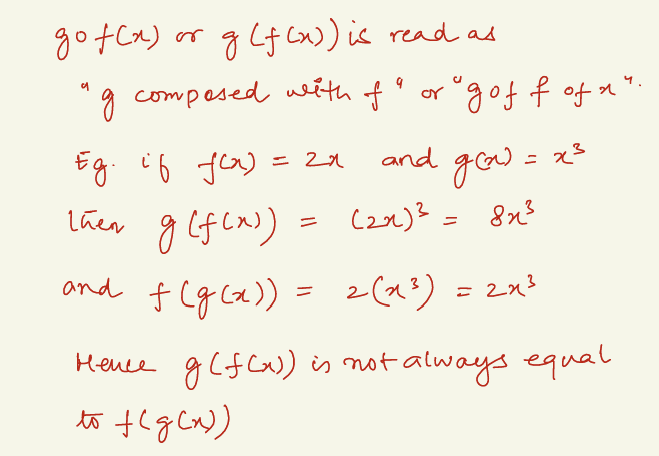 g o f(x) or g(f(x)) is read as
"g composed with f" or "g of f of x".
Eg. if f(x) = 2x and g(x) = x³
then g(f(x)) = (2x)³ = 8x³
and f(g(x)) = 2(x³) = 2x³
Hence g(f(x)) is not always equal
to f(g(x))